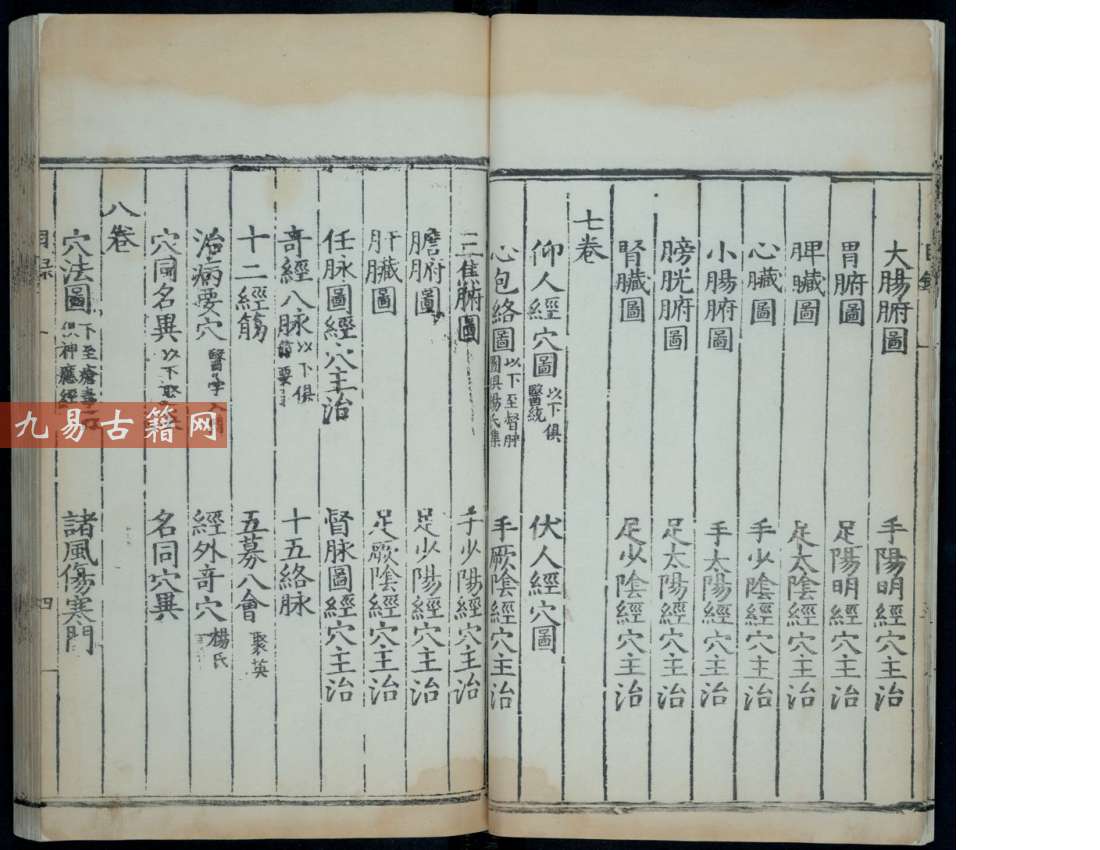 大腸腑圖 手陽明經穴主治
胃腑圖 足陽明經穴主治
脾臟圖 足太陰經穴主治
心臟圖 手少陰經穴主治
小腸腑圖 手太陽經穴主治
膀胱腑圖 足太陽經穴主治
腎臟圖 足少陰經穴主治
七卷
仰人經穴圖 以下俱醫統 伏人經穴圖
心包絡圖 以下至督脉圖俱楊氏集 手厥陰經穴主治
三焦腑圖 手少陽經穴主治
膽腑圖 足少陽經穴主治
肝臟圖 足厥陰經穴主治
任脉圖經穴主治 督脉圖經穴主治
竒經八脉 以下俱節要 十五絡脉
十二經筋 五募八會 聚英
治病要穴 醫學 經外竒穴 楊氏
穴同名異 以下聚 名同穴異
八卷
穴法圖 以下至瘡毒 俱神應經 諸風傷寒門
目録 四
九易古籍网